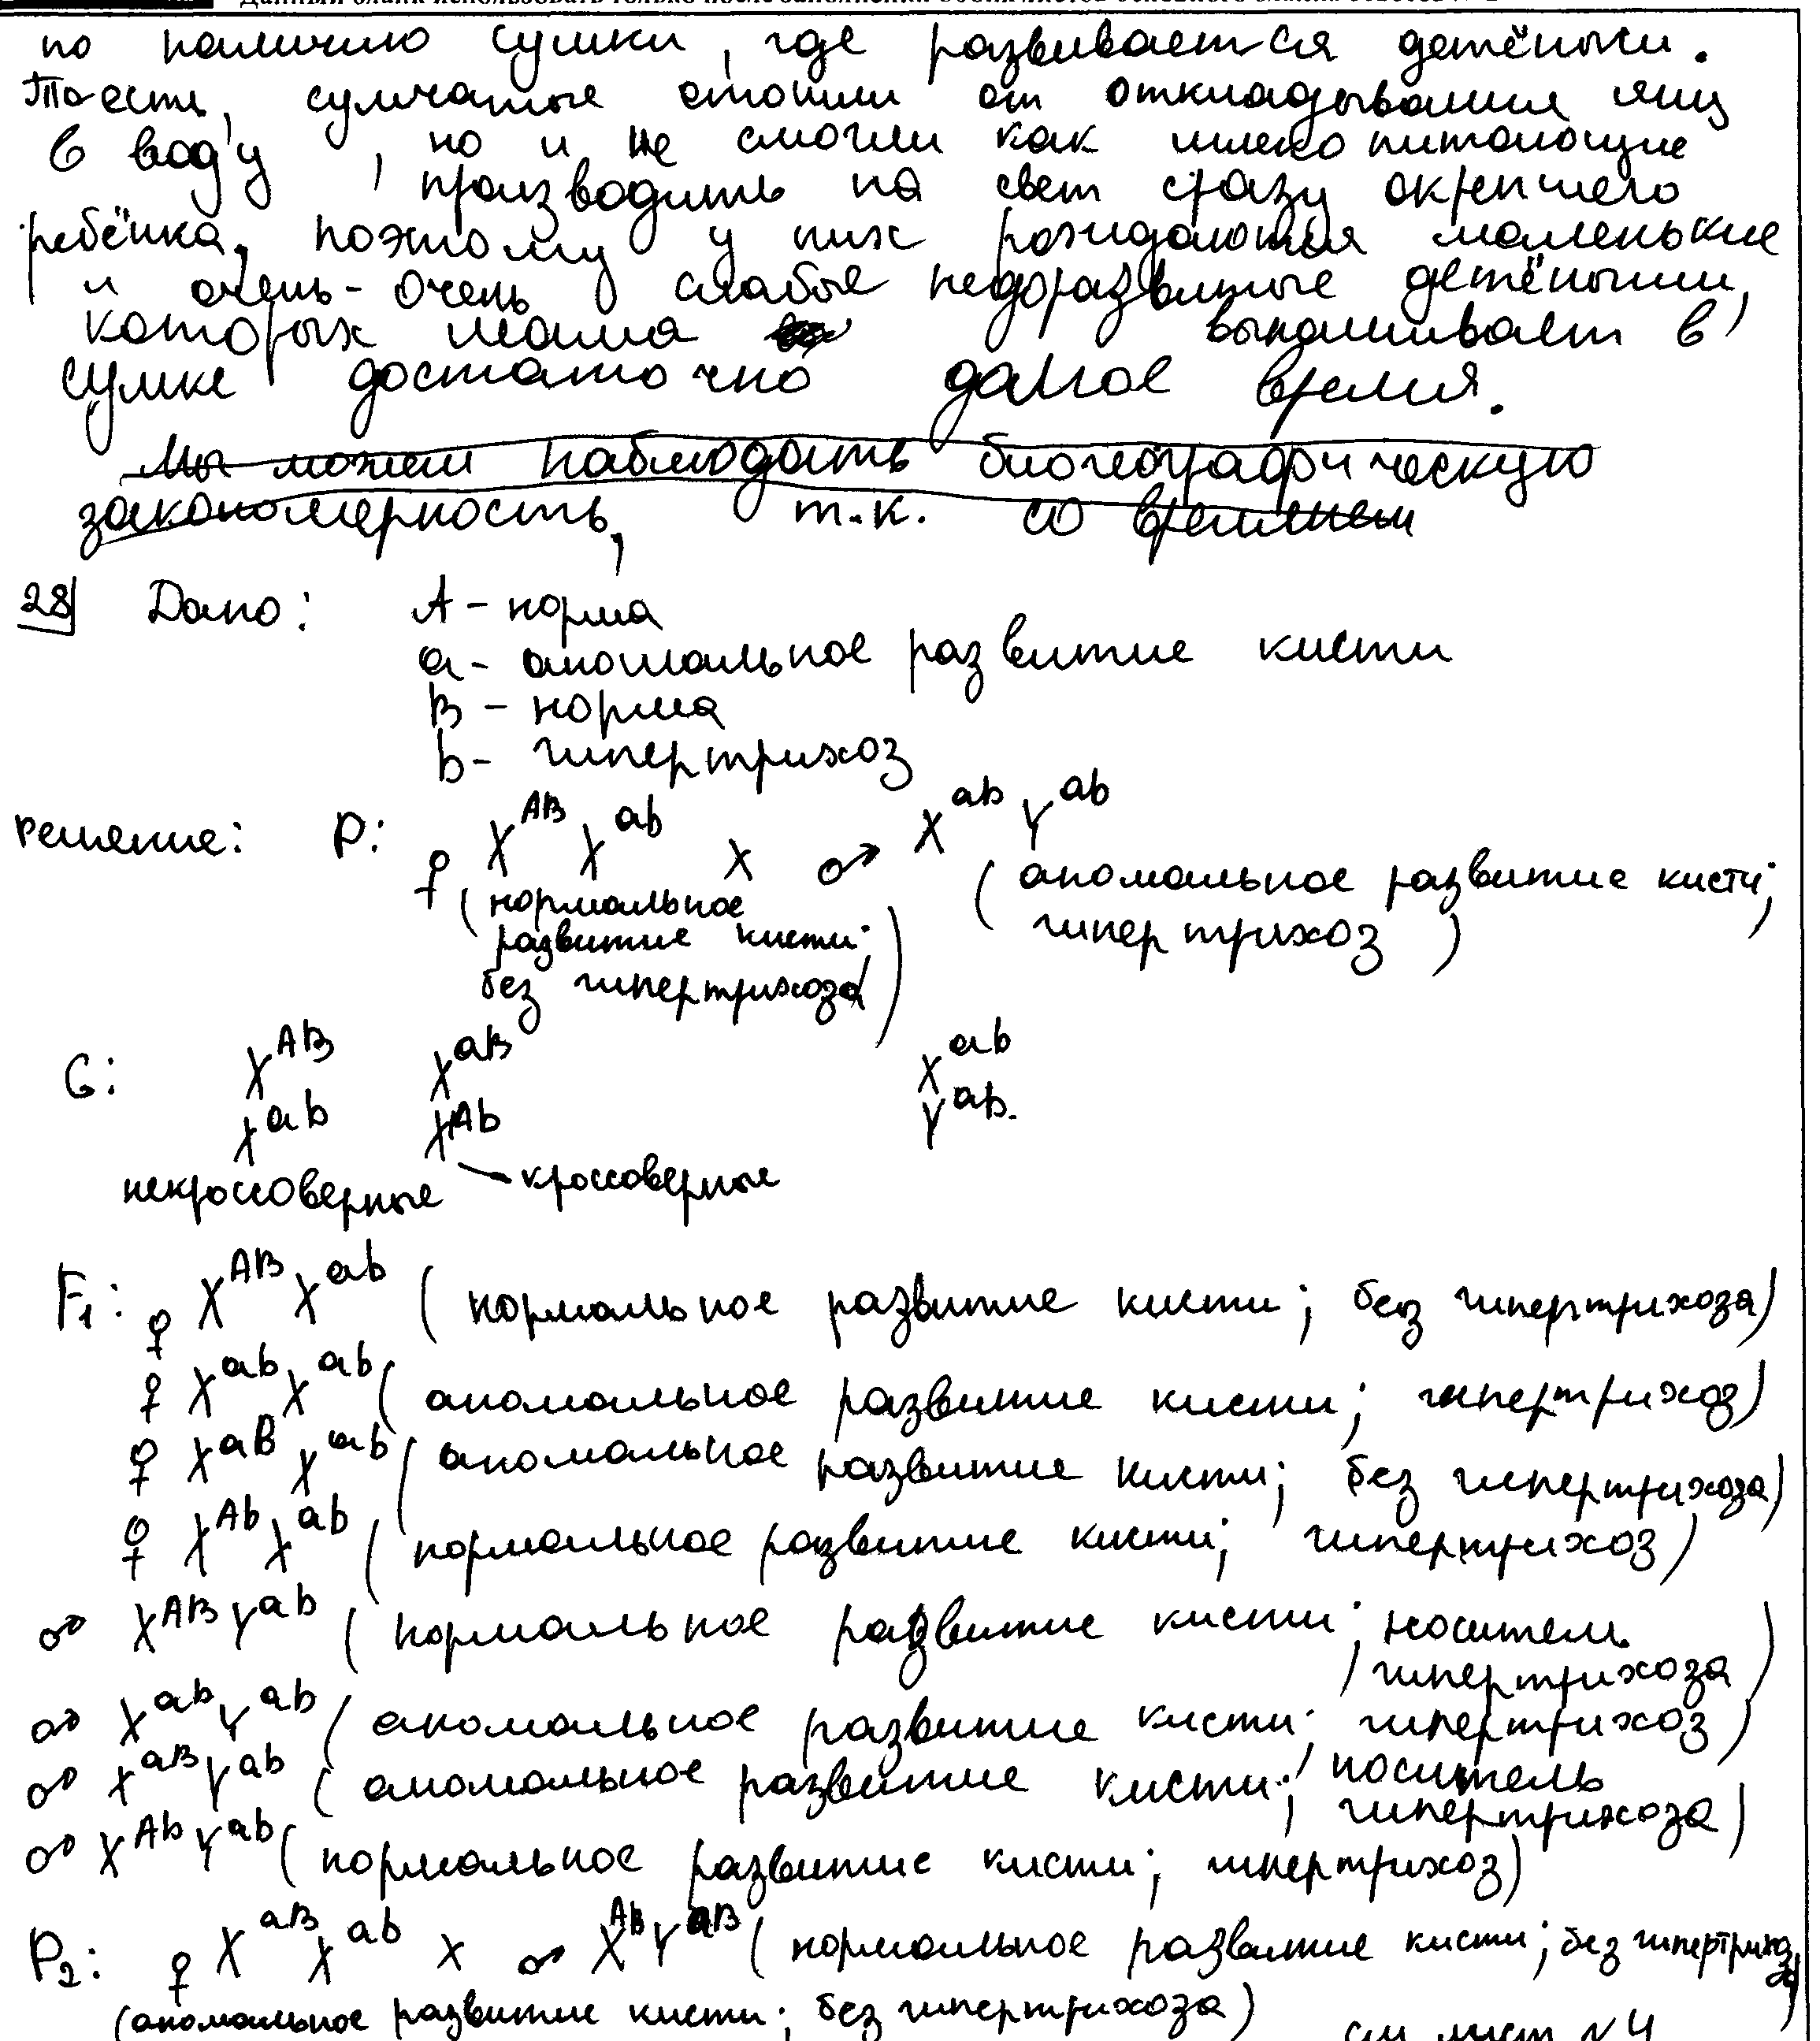 по наличию сумки, где развивается детёныш.
То есть, сумчатые отошли от откладывания яиц
в воду, но и не смогли как млекопитающие
производить на свет сразу окрепшего
ребёнка, поэтому у них рождаются маленькие
и очень-очень слабые недоразвитые детёныши,
которых мама вынашивает в
сумке достаточно долгое время.
Мы можем наблюдать биогеографическую
закономерность, т.к. со временем
28 Дано: A - норма
a - аномальное развитие кисти
B - норма
b - гипертрихоз
Решение: P: ♀ X^AB X^ab x ♂ X^ab Y^ab
(нормальное развитие кисти; без гипертрихоза) (аномальное развитие кисти; гипертрихоз)
G: X^AB X^aB X^ab
X^ab X^Ab Y^ab.
некроссоверные - кроссоверные
F1: ♀ X^AB X^ab (нормальное развитие кисти; без гипертрихоза)
♀ X^ab X^ab (аномальное развитие кисти; гипертрихоз)
♀ X^aB X^ab (аномальное развитие кисти; без гипертрихоза)
♀ X^Ab X^ab (нормальное развитие кисти; гипертрихоз)
♂ X^AB Y^ab (нормальное развитие кисти; носитель
гипертрихоза)
♂ X^ab Y^ab (аномальное развитие кисти; гипертрихоз)
♂ X^aB Y^ab (аномальное развитие кисти; носитель
гипертрихоза)
♂ X^Ab Y^ab (нормальное развитие кисти; гипертрихоз)
P2: ♀ X^aB X^ab x ♂ X^Ab Y^aB (нормальное развитие кисти; без гипертрихоза)
(аномальное развитие кисти; без гипертрихоза)
см лист №4